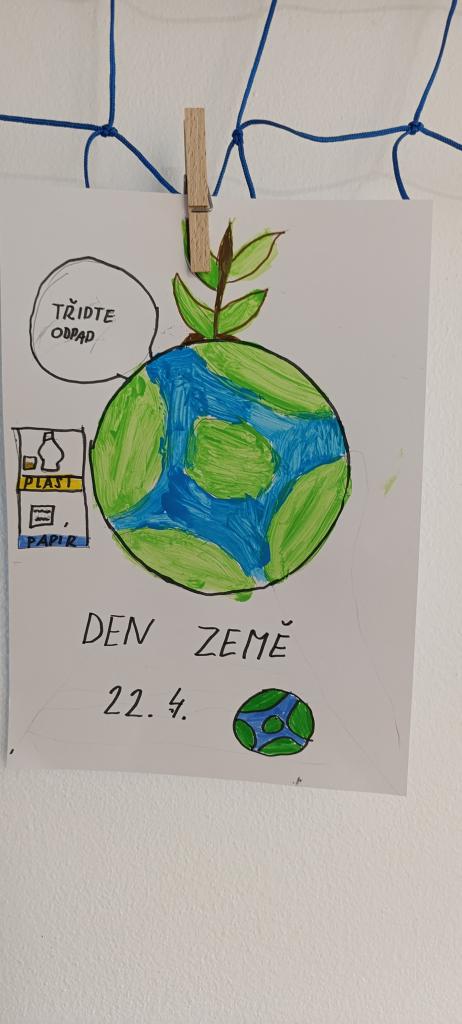 TŘIDTE
ODPAD
PLAST
PAPIR
DEN ZEMĚ
22.4.